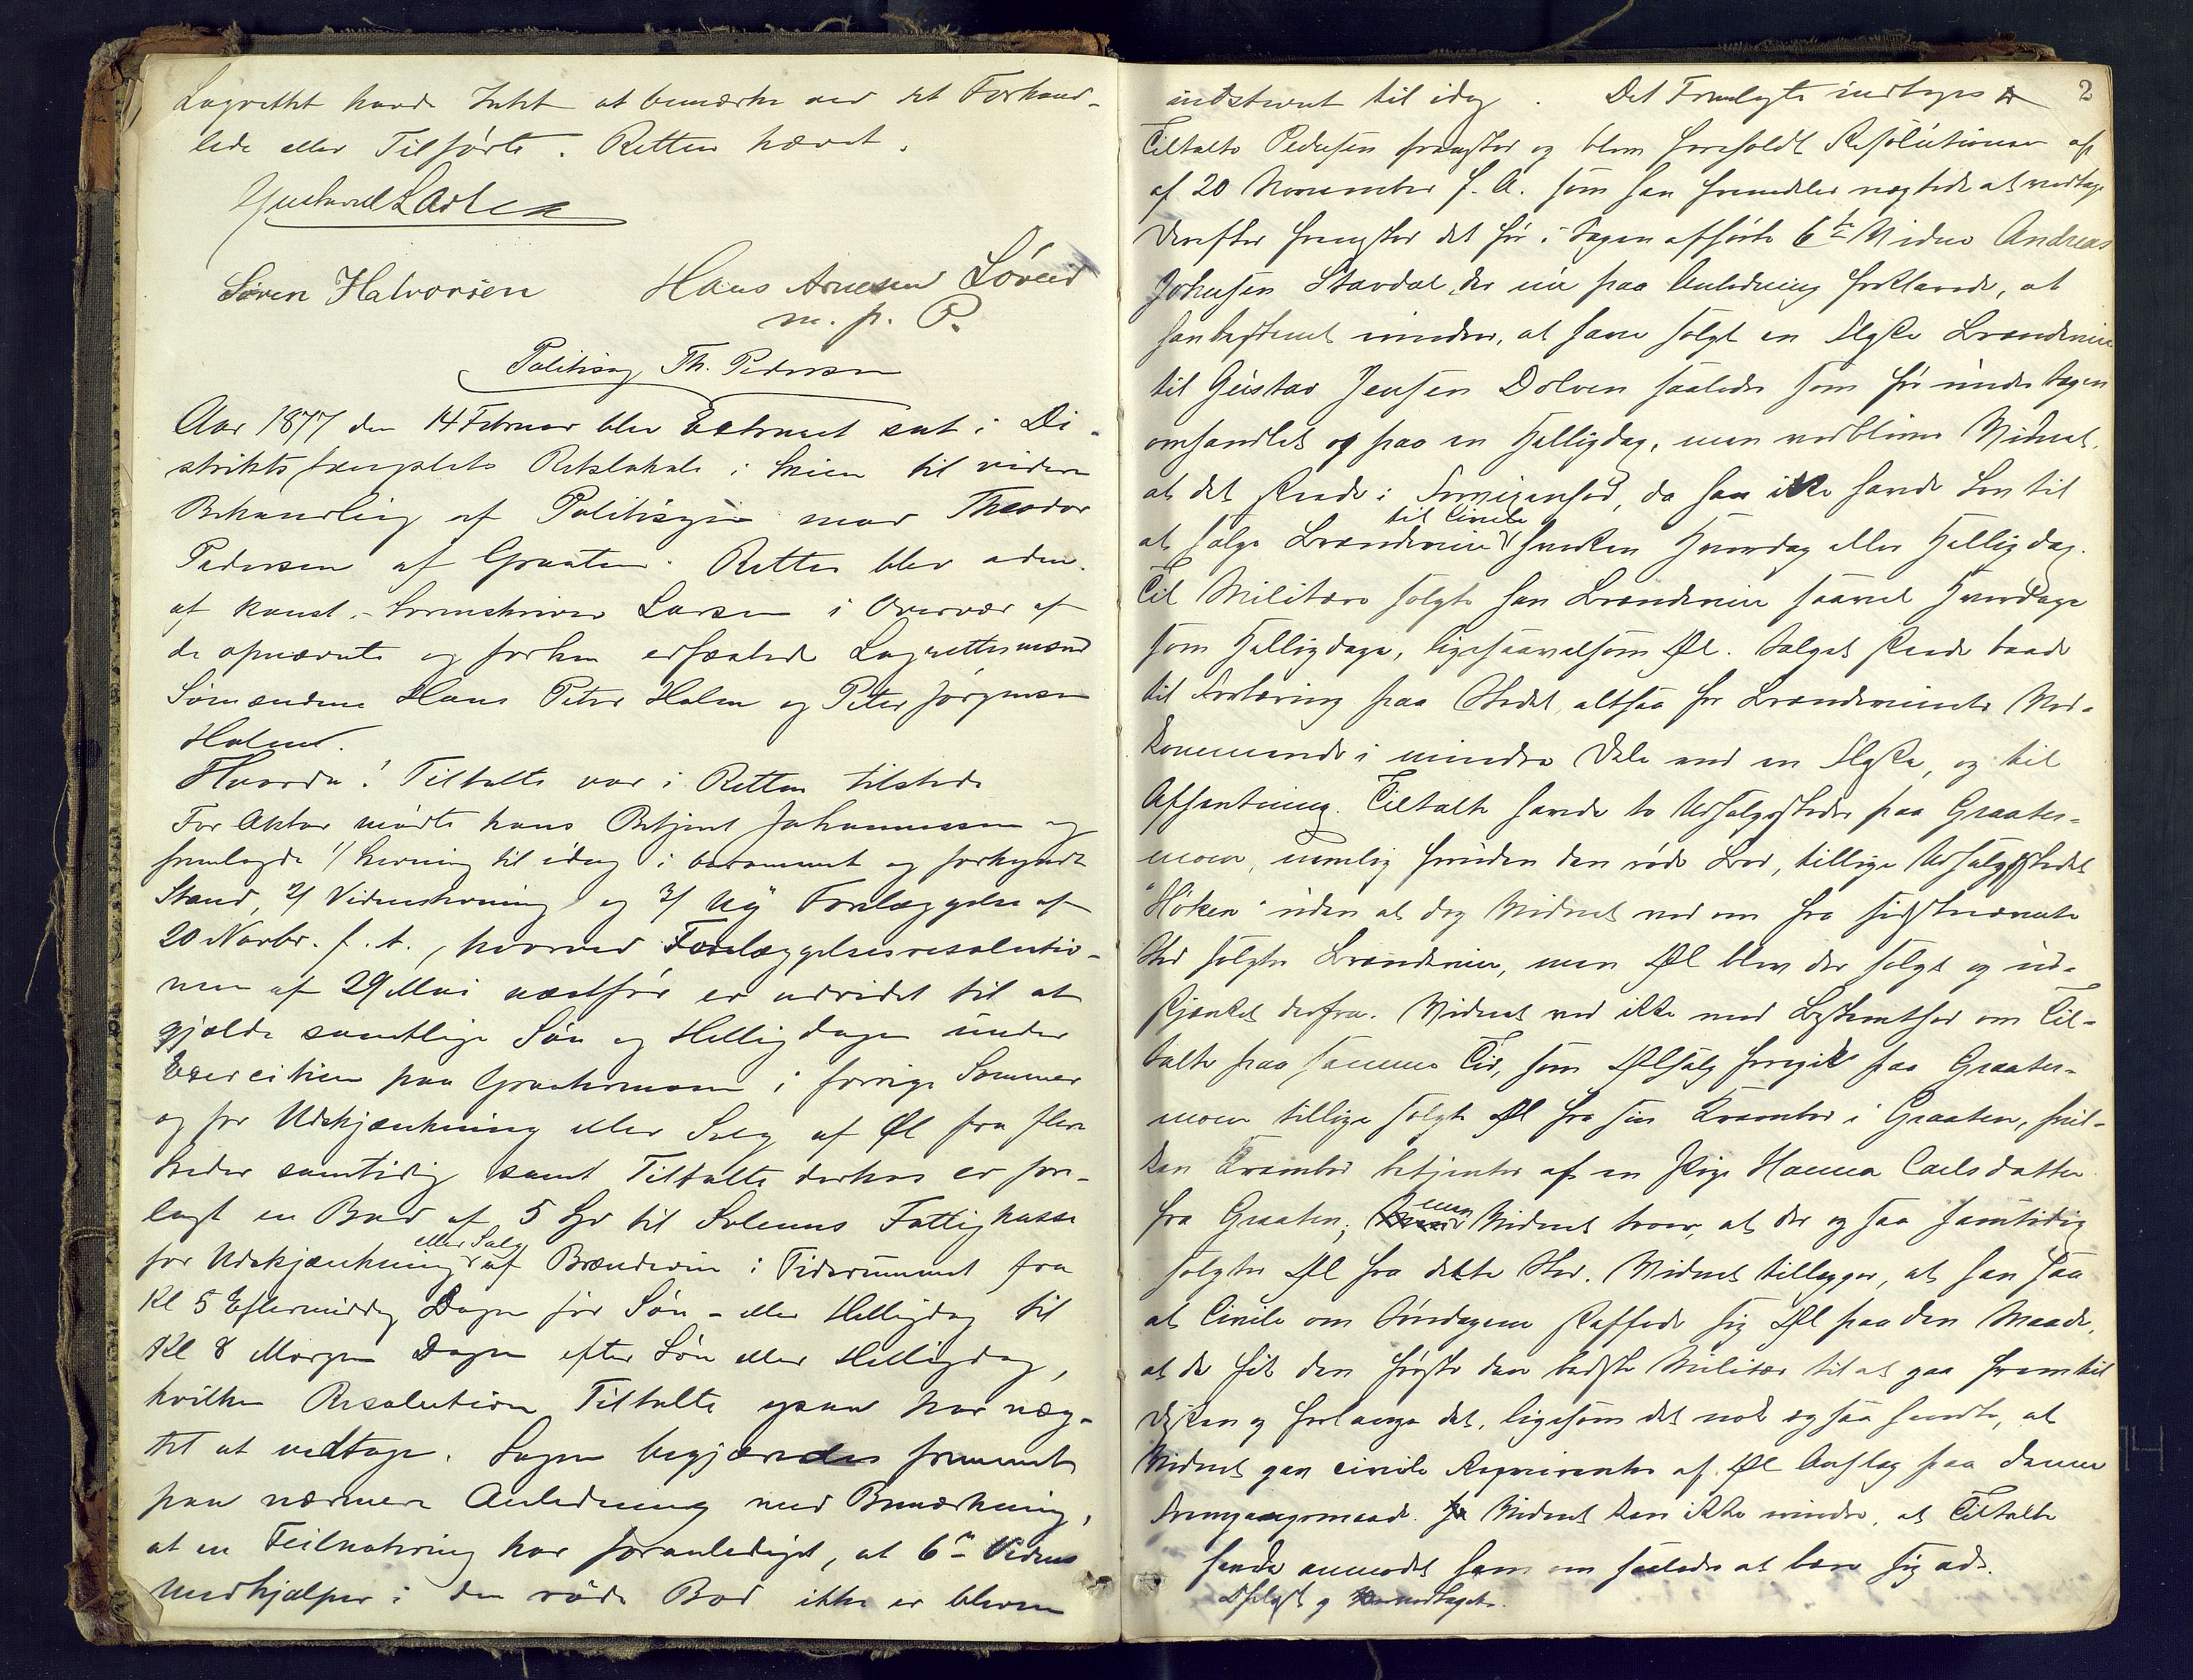 Lagrettet havde Intet at bemærke ved det Forhand-
lede eller Tilførte. Retten hævet.
Gustav Larsen
Søren Halvorsen Hans Arnesen Løveid
m. p. P.
Politisag Th. Pedersen
Aar 1877 den 14 Februar blev Extraret sat i Di-
striktsfængslets Retslokale i Skien til videre
Behandling af Politisagen mod Theodor
Pedersen af Graaten. Retten blev adm.
af konst. Sorenskriver Larsen i Overvær af
de opnævnte og forhen edfæstede Lagrettesmænd
Sømændene Hans Peter Holm og Peter Jørgensen
Holm.
Hvorda! Tiltalte var i Retten tilstede
For Aktor mødte hans Betjent Johannessen og
fremlagde 1/ Stevning til idag i berammet og forkyndt
Stand, 2/ Vidnestevning og 3/ Ny Forelæggelse af
20 Novbr. f. A., hvorved Forelæggelsesresolutio-
nen af 29 Mai næstfør er udvidet til at
gjælde samtlige Søn og Helligdage under
Exercitien paa Graatenmoen i forrige Sommer
og for Udskjænkning eller Salg af Øl fra flere
Steder samtidig samt Tiltalte derhos er fore-
lagt en Bod af 5 Spd til Solums Fattigkasse
eller Salg
for Udskjænkning af Brændevin i Tidsrummet fra
Kl 5 Eftermiddag Dagen før Søn- eller Helligdag til
Kl 8 Morgen Dagen efter Søn eller Helligdag,
hvilken Resolution Tiltalte ogsaa har næg-
tet at vedtage. Sagen begjæredes fremmet
paa nærmere Anledning med Bemærkning,
at en Feilnotering har foranlediget, at 6te Vidnes
Medhjælper i den røde Bod ikke er bleven
2
indstevnt til idag. Det Fremlagte indtages
Tiltalte Pedersen fremstod og blev foreholdt Resolutionen af
af 20 November f. A. som han fremdeles nægtede at vedtage
Derefter fremstod det før i Sagen afhørte 6te Vidne Andreas
Johnsen Stavdal, der nu paa Anledning forklarede, at
han bestemt mindes, at have solgt en Flaske Brændevin
til Gustav Jensen Dolven saaledes som før under Sagen
omhandlet og paa en Helligdag, men vedbliver Vidnet,
at det skede i Ubevidenhed, da han ikke havde Lov til
til Civile
at sælge Brændevin hverken Hverdag eller Helligdag.
Til Militære solgte han Brændevin saavel Hverdage
som Helligdage, ligesaavelsom Øl. Salget skede baade
til Fortæring paa Stedet, altsaa for Brændevinets Ved-
kommende i mindre Dele end en Flaske, og til
Afhentning. Tiltalte havde to Udsalgssteder paa Graaten-
moen, nemlig foruden den røde Bod, tillige Udsalgsstedet
"Høken" uden at dog Vidnet ved om fra sidstnævnte
Sted solgtes Brændevin, men Øl blev der solgt og ud-
skjænket derfra. Vidnet ved ikke med Bestemthed om Til-
talte paa samme Tid, som Ølsalg foregik paa Graaten-
moen tillige solgte Øl fra sin Krambod i Graaten, hvil-
ken Krambod betjentes af en Pige Hanna Carlsdatter
fra Graaten; men Vidnet troer, at der ogsaa samtidig
solgtes Øl fra dette Sted. Vidnet tillægger, at han saa
at Civile om Søndagene skaffede sig Øl paa den Maade,
at de fik den første den bedste Militær til at gaa frem til
Disken og forlange det, ligesom det nok ogsaa hændte, at
Vidnet gav civile Reqvirenter af Øl Anslag paa denne
Fremgangsmaade. Vidnet kan ikke mindes, at Tiltalte
havde anmodet ham om saaledes at bære sig ad.
Oplæst og vedtaget.